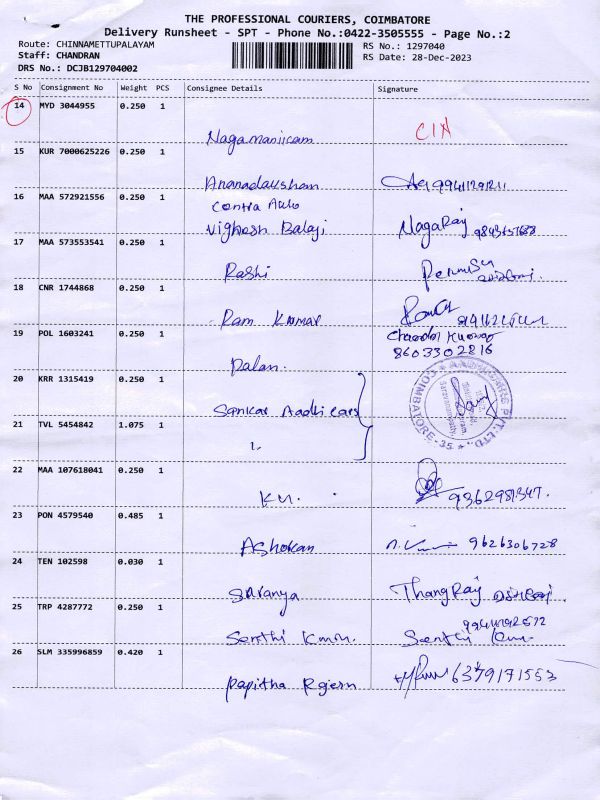 THE PROFESSIONAL COURIERS, COIMBATORE
Delivery Runsheet - SPT - Phone No.:0422-3505555 - Page No.:2
Route: CHINNAMETTUPALAYAM
RS No.: 1297040
Staff: CHANDRAN
RS Date: 28-Dec-2023
DRS No.: DCJB129704002
S No Consignment No Weight PCS Consignee Details Signature
14 MYD 3044955 0.250 1
Nagamanicam
15 KUR 7000625226 0.250 1
16 MAA 572921556 0.250 1
Contra Auto
Vighesh Balaji NagaRaj
17 MAA 573553541 0.250 1
Rashi
18 CNR 1744868 0.250 1
Ram Kumar
19 POL 1603241 0.250 1
8603302816
Palan.
20 KRR 1315419 0.250 1
Sankar Aadhi cars
COIMBATORE-35
21 TVL 5454842 1.075 1
22 MAA 107618041 0.250 1
KM. 9362981347.
23 PON 4579540 0.485 1
Ashokan 9626306728
24 TEN 102598 0.030 1
Saranya ThangRaj
25 TRP 4287772 0.250 1
Senthi
26 SLM 335996859 0.420 1
Papitha 6379171553